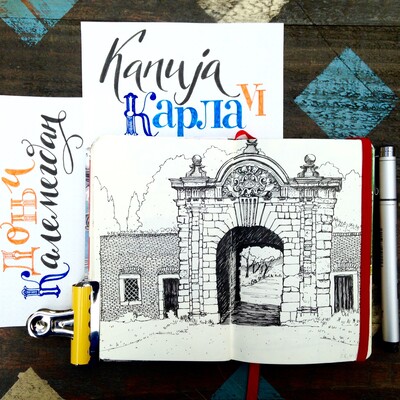 Капија
Карла VI
Доњи
Калемегдан